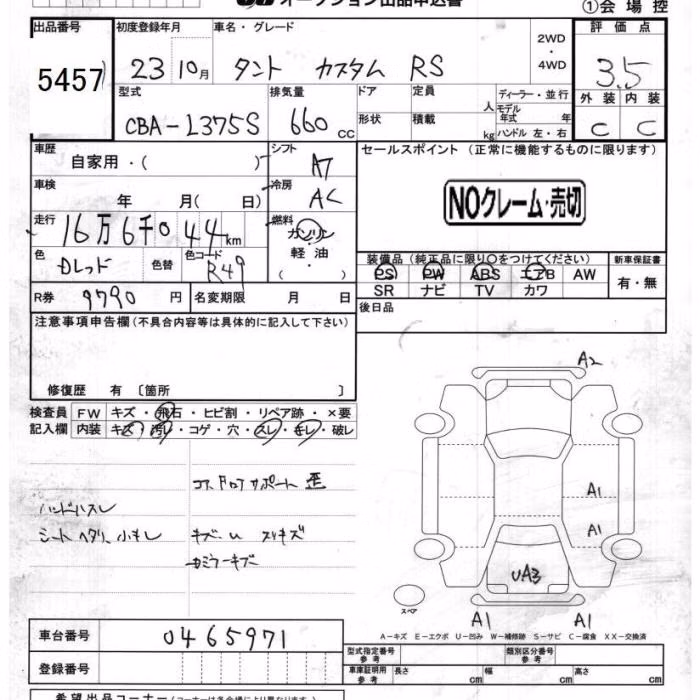 オークション出品申込書
①会場控
出品番号
初度登録年月
車名・グレード
評価点
5457
23 10月
タント カスタム RS
2WD
・
4WD
3.5
型式
排気量
ドア
定員
人
ディーラー・並行
外装 内装
CBA-L375S
660 cc
形状
積載
kg
モデル年式
年
ハンドル 左・右
C C
車歴
自家用・( )
シフト
AT
セールスポイント(正常に機能するものに限ります)
車検
年 月( 日)
冷房
AC
NOクレーム・売切
走行
16万6千044km
燃料
ガソリン
・
軽油
( )
色
色替
色コード
R49
装備品(純正品に限り○をつけてください)
新車保証書
PS PW ABS エアB AW
SR ナビ TV カワ
有・無
R券
9790円
名変期限
月 日
後日品
注意事項申告欄(不具合内容等は具体的に記入して下さい)
修復歴 有〔箇所 〕
検査員
記入欄
FW キズ・飛石・ヒビ割・リペア跡・×要
内装 キズ・汚れ・コゲ・穴・スレ・キレ・破レ
コアサポート 歪
ハンドルスレ
シートヘタリ、小キレ
A2
A1
A1
UA3
スペア
A1
A1
A-キズ E-エクボ U-凹み W-補修跡 S-サビ C-腐食 XX-交換済
車台番号
0465971
型式指定番号
参考
類別区分番号
参考
登録番号
車庫証明用
参考
長さ cm 幅 cm 高さ cm
希望出品コーナー